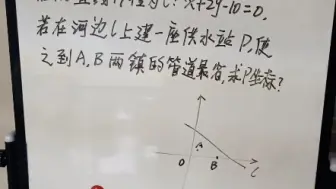 l:x+2y-10=0,
若在河边l上建一座供水站P,使
之到A,B两镇的管道最省,求P坐标?
A
O B l